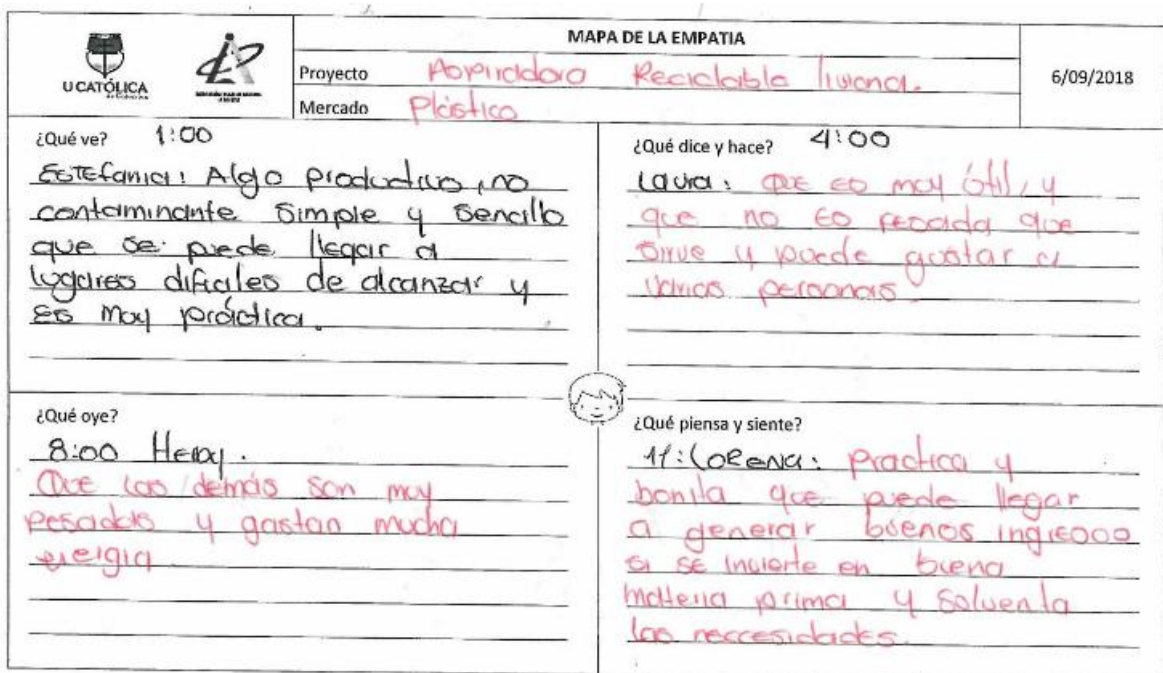 MAPA DE LA EMPATIA
U CATÓLICA
de Colombia
Proyecto Aspiradora Reciclable liviana.
Mercado Plástico
6/09/2018
¿Qué ve? 1:00
Estefania: Algo productivo, no
contaminante simple y sencillo
que se puede llegar a
lugares dificiles de alcanzar y
es muy práctica.
¿Qué dice y hace? 4:00
Laura: Que es muy útil, y
que no es pesada que
sirve y puede gustar a
varias personas
¿Qué oye?
8:00
Que las demás son muy
pesadas y gastan mucha
energia
¿Qué piensa y siente?
11: Lorena: practica y
bonita que puede llegar
a generar buenos ingresos
si se invierte en buena
materia prima y solventa
las neccesidades.